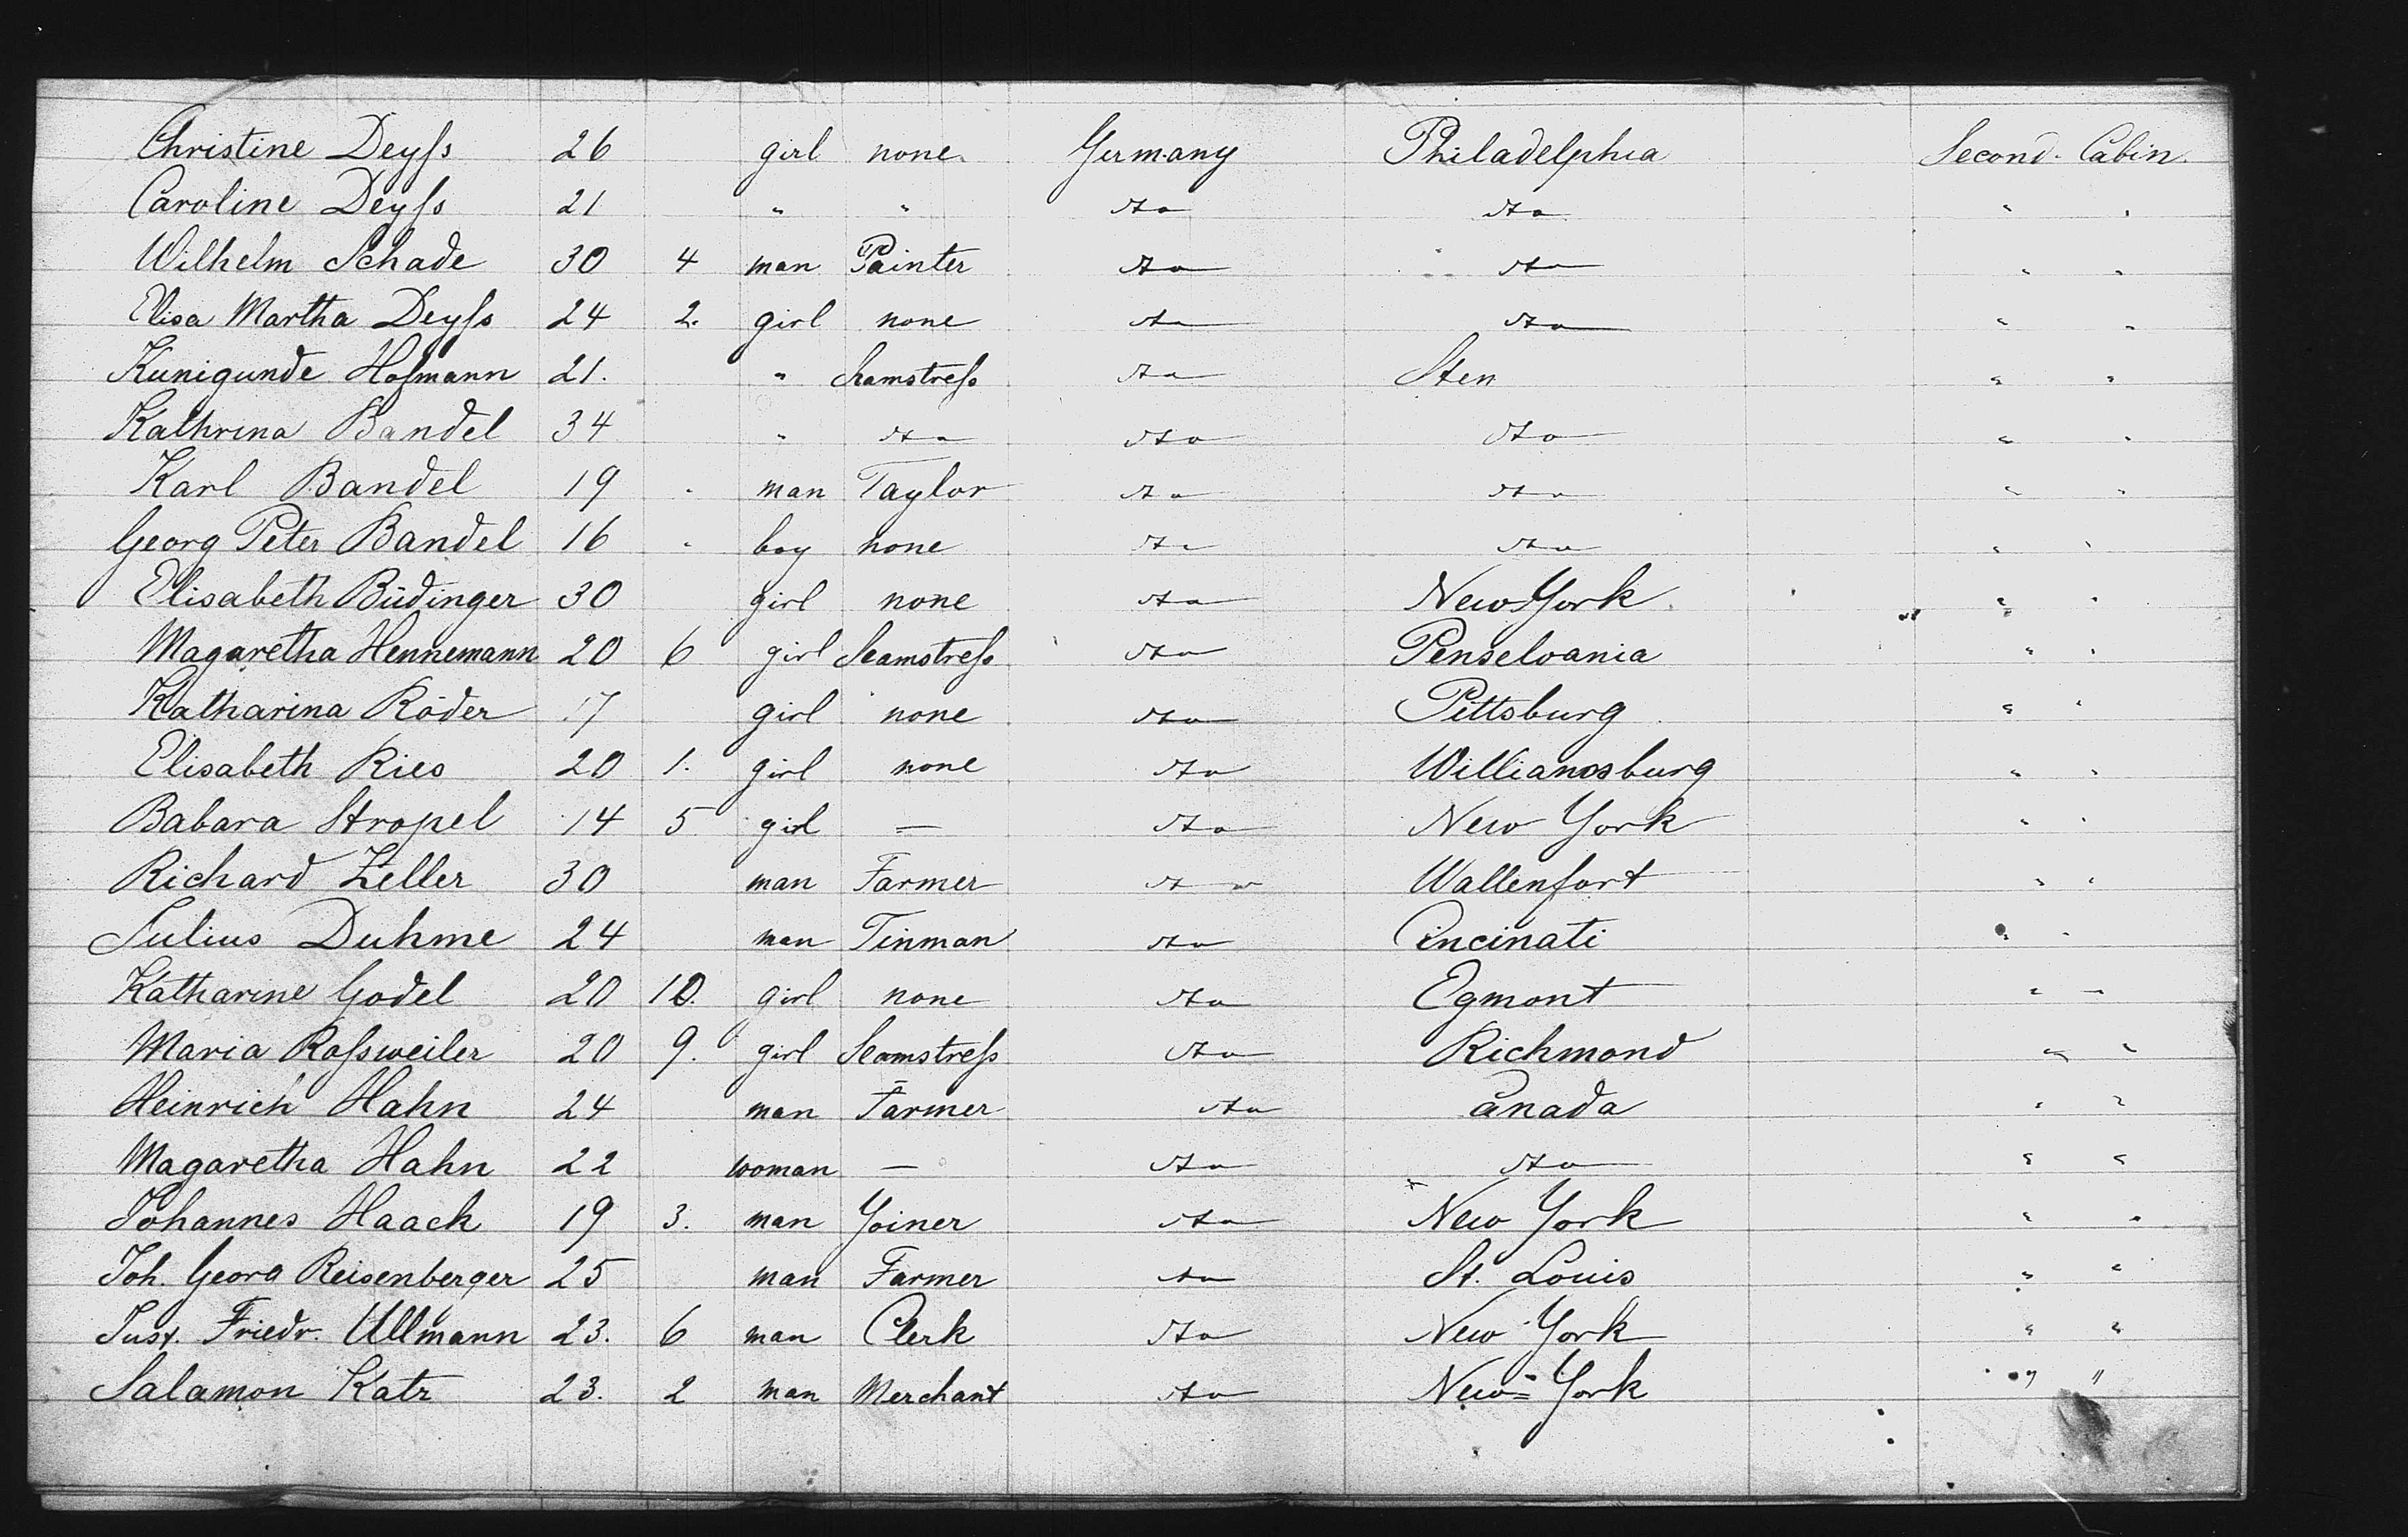 Christine Deyſs 26 girl none Germany Philadelphia Second Cabin
Caroline Deyſs 21 " " do do " "
Wilhelm Schade 30 4 man Painter do do " "
Elisa Martha Deyſs 24 2. girl none do do " "
Kunigunde Hofmann 21. " Seamstreſs do " "
Kathrina Bandel 34 " do do do " "
Karl Bandel 19 man Taylor do do " "
Georg Peter Bandel 16 boy none do do " "
Elisabeth Büdinger 30 girl none do New York " "
Magaretha Hennemann 20 6 girl Seamstreſs do Penselvania " "
Katharina Röder 17 girl none do Pittsburg " "
Elisabeth Ries 20 1. girl none do Williamsburg " "
Babara Stropel 14 5 girl — do New York " "
Richard Zeller 30 man Farmer do Wallenfort " "
Julius Duhme 24 man Tinman do Cincinati " "
Katharine Godel 20 10. girl none do Egmont " "
Maria Roſsweiler 20 9. girl Seamstreſs do Richmond " "
Heinrich Hahn 24 man Farmer do Canada " "
Magaretha Hahn 22 woman — do do " "
Johannes Haack 19 3. man Yoiner do New York " "
Joh. Georg Reisenberger 25 man Farmer do St. Louis " "
Just. Friedr. Ullmann 23. 6 man Clerk do New York " "
Salamon Katz 23. 2 man Merchant do New=York " "